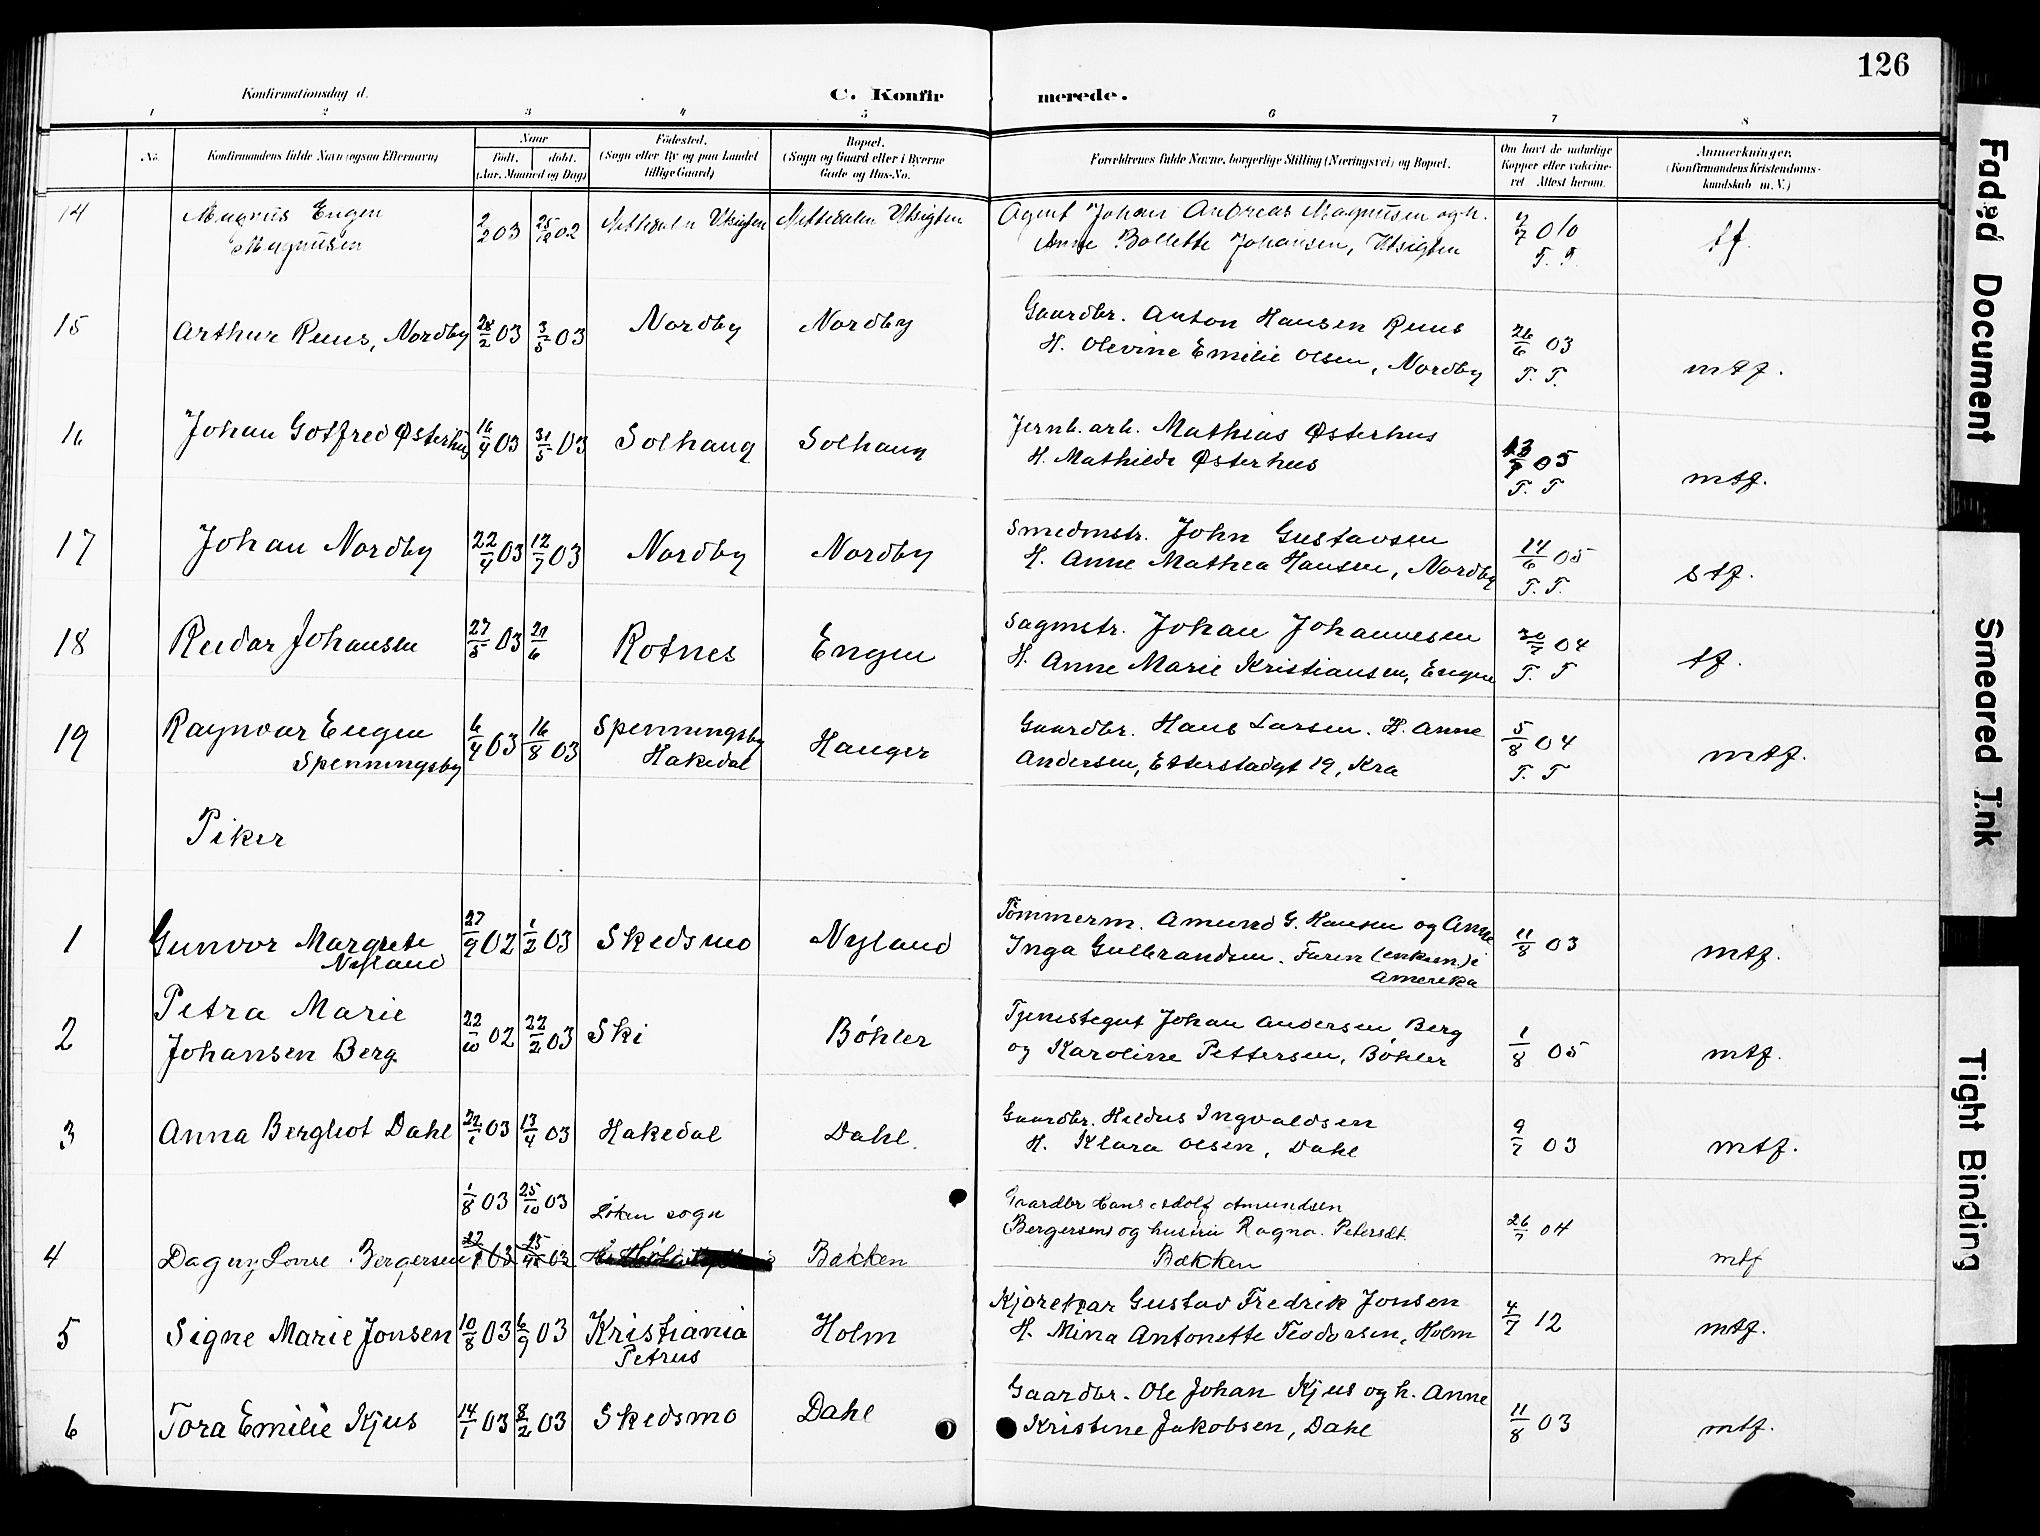 126
Konfirmationsdag d.
C. Konfir merede.
1 2 3 4 5 6 7 8
No. Konfirmandens fulde Navn (ogsaa Efternavn) Naar Födt. döbt. (Aar, Maaned og Dag) Födested. (Sogn eller By og paa Landet tillige Gaard) Bopæl. (Sogn og Gaard eller i Byerne Gade og Hus-No. Forældrenes fulde Navne, borgerlige Stilling (Næringsvei) og Bopæl. Om havt de naturlige Kopper eller vaccineret Attest herom. Anmærkninger. (Konfirmandens Kristendomskundskab m. V.)
14 Magnus Engen 2/2 03 25/12 02 Nittedalen Utsigten Nittedalen Utsigten Agent Johan Andreas Magnusen og h.
Magnusen Anne Bollette Johansen, Utsigten tf.
15 Arthur Ruus, Nordby 28/2 03 3/5 03 Nordby Nordby Gaardbr. Anton Hansen Ruus
H. Olevine Emilie Olsen, Nordby 26/6 03 T. T. mtf.
16 Johan Gotfred Østerhus 16/4 03 31/5 03 Solhaug Solhaug Jernb. arb. Mathias Østerhus
H. Mathilde Østerhus 05 T. T mtf.
17 Johan Nordby 22/4 03 12/7 03 Nordby Nordby Smedmstr. John Gustavsen
H. Anne Mathea Hansen, Nordby 14/6 05 T. T. stf.
18 Reidar Johansen 27/5 03 21/6 Rotnes Engen Sagmstr. Johan Johannesen
H. Anne Marie Kristiansen, Engen 04 T. T tf.
19 Raynvar Eugen 6/4 03 16/8 03 Spenningsby Hauger Gaardbr. Hans Larsen. H. Anne
Spenningsby Hakedal Andersen, Etterstadgt 19, Kra 5/8 04 T. T mtf.
Piker
1 Gunvor Margrete 27/9 02 1/2 03 Skedsmo Nyland Tømmerm. Amund G. Hansen og Anne
Nyland Inga Gulbrandsen. Faren (enkem.) i
Amerika 11/8 03 mtf.
2 Petra Marie 22/10 02 22/2 03 Ski Bøhler Tjenestegut Johan Andersen Berg
Johansen Berg og Karoline Pettersen, Bøhler 1/8 05 mtf.
3 Anna Bergliot Dahl 22/1 03 13/4 03 Hakedal Dahl. Gaardbr. Hildus Ingvaldsen
H. Klara Olsen, Dahl 9/7 03 mtf.
1/8 03 25/10 03 Løken sogn Gaardbr Hans Adolf Amundsen
Bergersen og hustru Ragna Petersdt. 26/7 04
4 Dagny Lovise Bergersen Bakken Bakken mtf
5 Signe Marie Jonsen 10/8 03 6/9 03 Kristiania Holm Kjørekar Gustav Fredrik Jonsen
Petrus H. Mina Antonette Teodorsen, Holm 4/7 12 mtf.
6 Tora Emilie Kjus 14/1 03 8/2 03 Skedsmo Dahl Gaardbr. Ole Johan Kjus og h. Anne
Kristine Jakobsen, Dahl 11/8 03 mtf.
Faded Document
Smeared Ink
Tight Binding